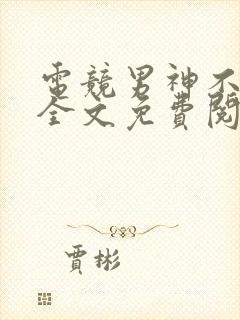 電競男神不
全文免費閱
賈彬